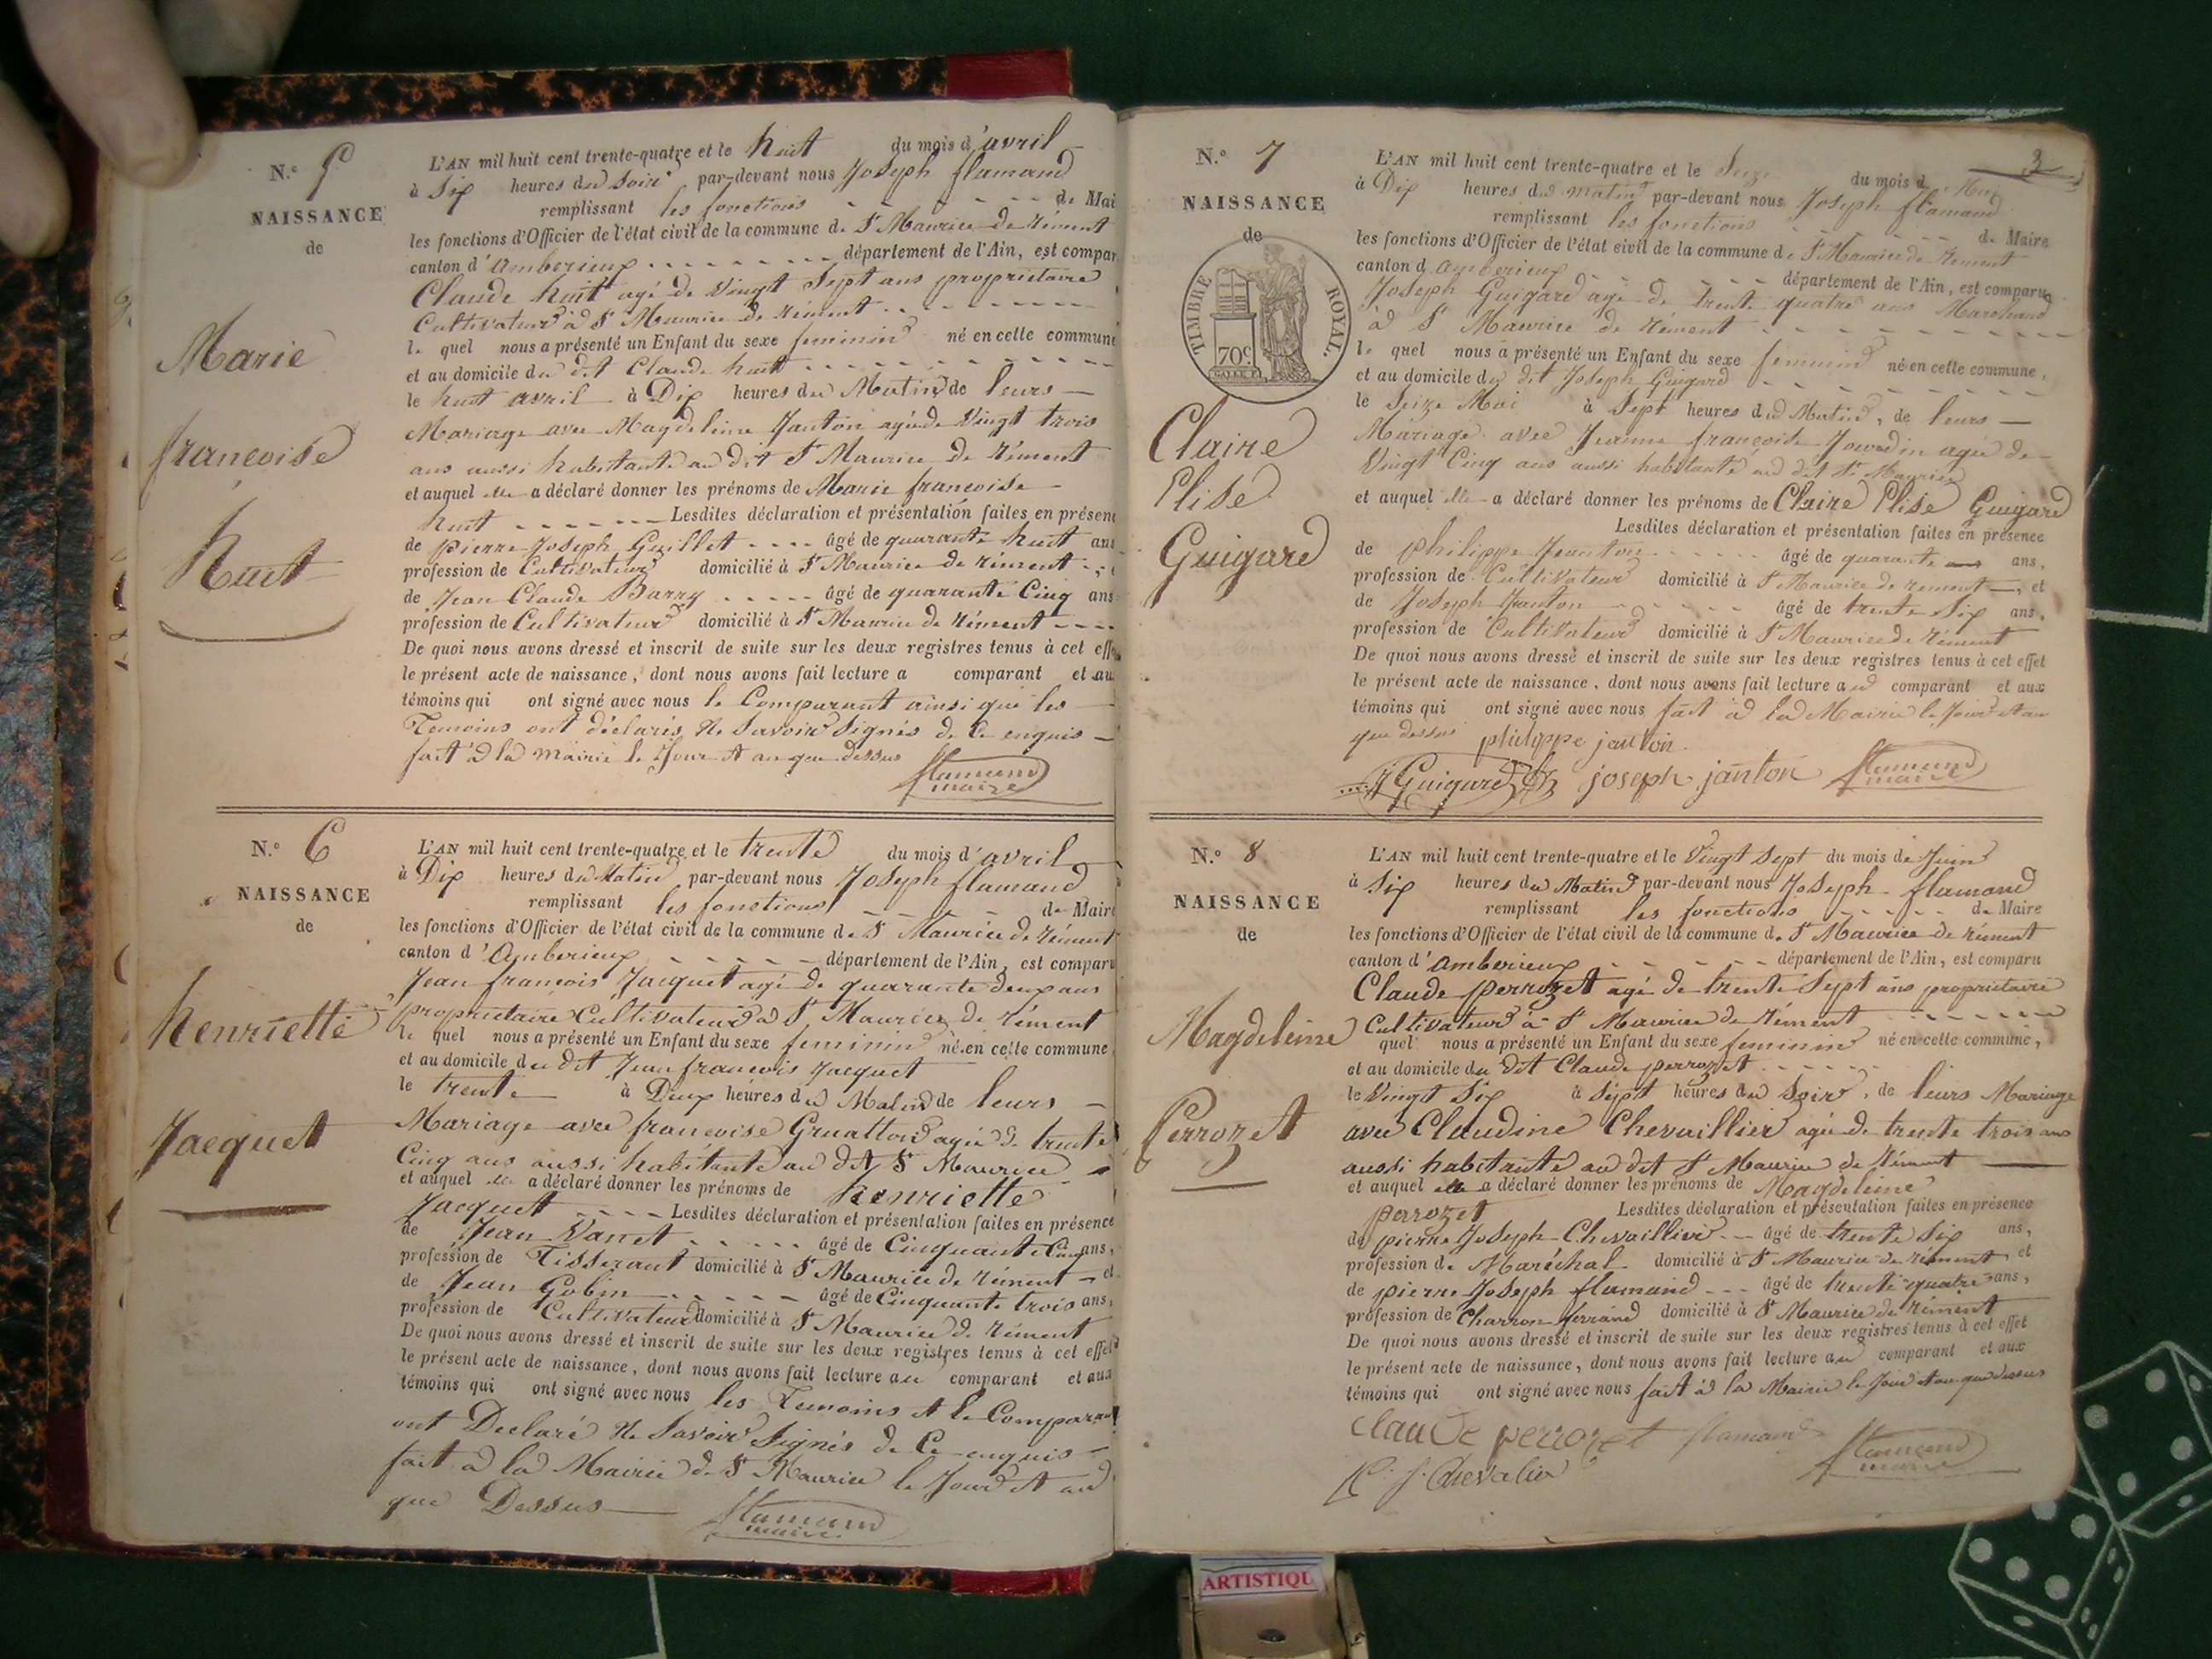 N.° 5
NAISSANCE
de
Marie
françoise
huit
L'AN mil huit cent trente-quatre et le huit du mois d'avril
à Six heures du Soir par-devant nous Joseph flamand
remplissant les fonctions de Mai
les fonctions d'Officier de l'état civil de la commune de St Maurice de rément
canton d'amberieux département de l'Ain, est compar
Claude huit agé de Vingt Sept ans propriétaire
Cultivateur à St Maurice de rément
le quel nous a présenté un Enfant du sexe feminin né en celle commune
et au domicile du dit Claude huit
le huit avril à Dix heures du Matin de leurs
Mariage avec Magdeleine Janton agée de Vingt trois
ans aussi habitante au dit St Maurice de rément
et auquel elle a déclaré donner les prénoms de Marie françoise
huit Lesdites déclaration et présentation faites en présen
de pierre Joseph Guillet âgé de quarante huit ans
profession de Cultivateur domicilié à St Maurice de rément
de Jean Claude Barry âgé de quarante Cinq ans
profession de Cultivateur domicilié à St Maurice de rément
De quoi nous avons dressé et inscrit de suite sur les deux registres tenus à cet effe
le présent acte de naissance, dont nous avons fait lecture a comparant et au
témoins qui ont signé avec nous le Comparant ainsi que les
Temoins ont déclarés Ne Savoir Signés de Ce enquis
fait à la mairie le Jour et an que dessus
flamand
maire
N.° 6
NAISSANCE
de
henriette
Jacquet
L'AN mil huit cent trente-quatre et le trente du mois d'avril
à Dix heures du Matin par-devant nous Joseph flamand
remplissant les fonctions de Maire
les fonctions d'Officier de l'état civil de la commune de St Maurice de rément
canton d'Amberieux département de l'Ain, est comparu
Jean françois Jacquet agé de quarante deux ans
propriétaire Cultivateur à St Maurice de rément
le quel nous a présenté un Enfant du sexe feminin né en celle commune
et au domicile du dit Jean françois Jacquet
le trente à Deux heures du Matin de leurs
Mariage avec françoise Gruatton agée de trente
Cinq ans aussi habitante au dit St Maurice
et auquel elle a déclaré donner les prénoms de henriette
Jacquet Lesdites déclaration et présentation faites en présence
de Jean âgé de Cinquante Cinq ans,
profession de Tisserant domicilié à St Maurice de rément et
de Jean Gobin âgé de Cinquante trois ans,
profession de Cultivateur domicilié à St Maurice de rément
De quoi nous avons dressé et inscrit de suite sur les deux registres tenus à cet effet
le présent acte de naissance, dont nous avons fait lecture au comparant et aux
témoins qui ont signé avec nous les Temoins et le Comparant
ont Declaré Ne Savoir Signés de Ce enquis
fait à la Mairie de St Maurice le Jour et an
que Dessus
flamand
maire
3
N.° 7
NAISSANCE
de
TIMBRE ROYAL.
70c
Claire
Elise
Guigard
L'AN mil huit cent trente-quatre et le Seize du mois de Mai
à Dix heures du matin par-devant nous Joseph flamand
remplissant les fonctions de Maire
les fonctions d'Officier de l'état civil de la commune de St Maurice de rément
canton d'amberieux département de l'Ain, est comparu
Joseph Guigard agé de trente quatre ans Marchand
à St Maurice de rément
le quel nous a présenté un Enfant du sexe feminin né en celle commune,
et au domicile du dit Joseph Guigard
le Seize Mai à Sept heures du Matin, de leurs
Mariage avec Jeanne françoise Jourdin agée de
Vingt Cinq ans aussi habitante au dit St Maurice
et auquel elle a déclaré donner les prénoms de Claire Elise Guigard
Lesdites déclaration et présentation faites en présence
de philippe Jeanton âgé de quarante ans,
profession de Cultivateur domicilié à St Maurice de rément, et
de Joseph Janton âgé de trente Six ans,
profession de Cultivateur domicilié à St Maurice de rément
De quoi nous avons dressé et inscrit de suite sur les deux registres tenus à cet effet
le présent acte de naissance, dont nous avons fait lecture au comparant et aux
témoins qui ont signé avec nous fait à la Mairie le Jour et an
que dessus philippe janton
Guigard joseph janton flamand
maire
N.° 8
NAISSANCE
de
Magdeleine
Perrozet
L'AN mil huit cent trente-quatre et le Vingt Sept du mois de Juin
à Six heures du Matin par-devant nous Joseph flamand
remplissant les fonctions de Maire
les fonctions d'Officier de l'état civil de la commune de St Maurice de rément
canton d'amberieux département de l'Ain, est comparu
Claude perrozet agé de trente Sept ans propriétaire
Cultivateur à St Maurice de rément
quel nous a présenté un Enfant du sexe feminin né en celle commune,
et au domicile du dit Claude perrozet
le Vingt Six à Sept heures du Soir, de leurs Mariage
avec Claudine Chevaillier agée de trente trois ans
aussi habitante au dit St Maurice de rément
et auquel elle a déclaré donner les prénoms de Magdeleine
perrozet Lesdites déclaration et présentation faites en présence
de pierre Joseph Chevaillier âgé de trente Six ans,
profession de Maréchal domicilié à St Maurice de rément et
de pierre Joseph flamand âgé de trente quatre ans,
profession de Charron ferrand domicilié à St Maurice de rément
De quoi nous avons dressé et inscrit de suite sur les deux registres tenus à cet effet
le présent acte de naissance, dont nous avons fait lecture au comparant et aux
témoins qui ont signé avec nous fait à la Mairie le Jour et an que dessus
Claude perrozet flamand flamand
maire
Chevalier
ARTISTIQU